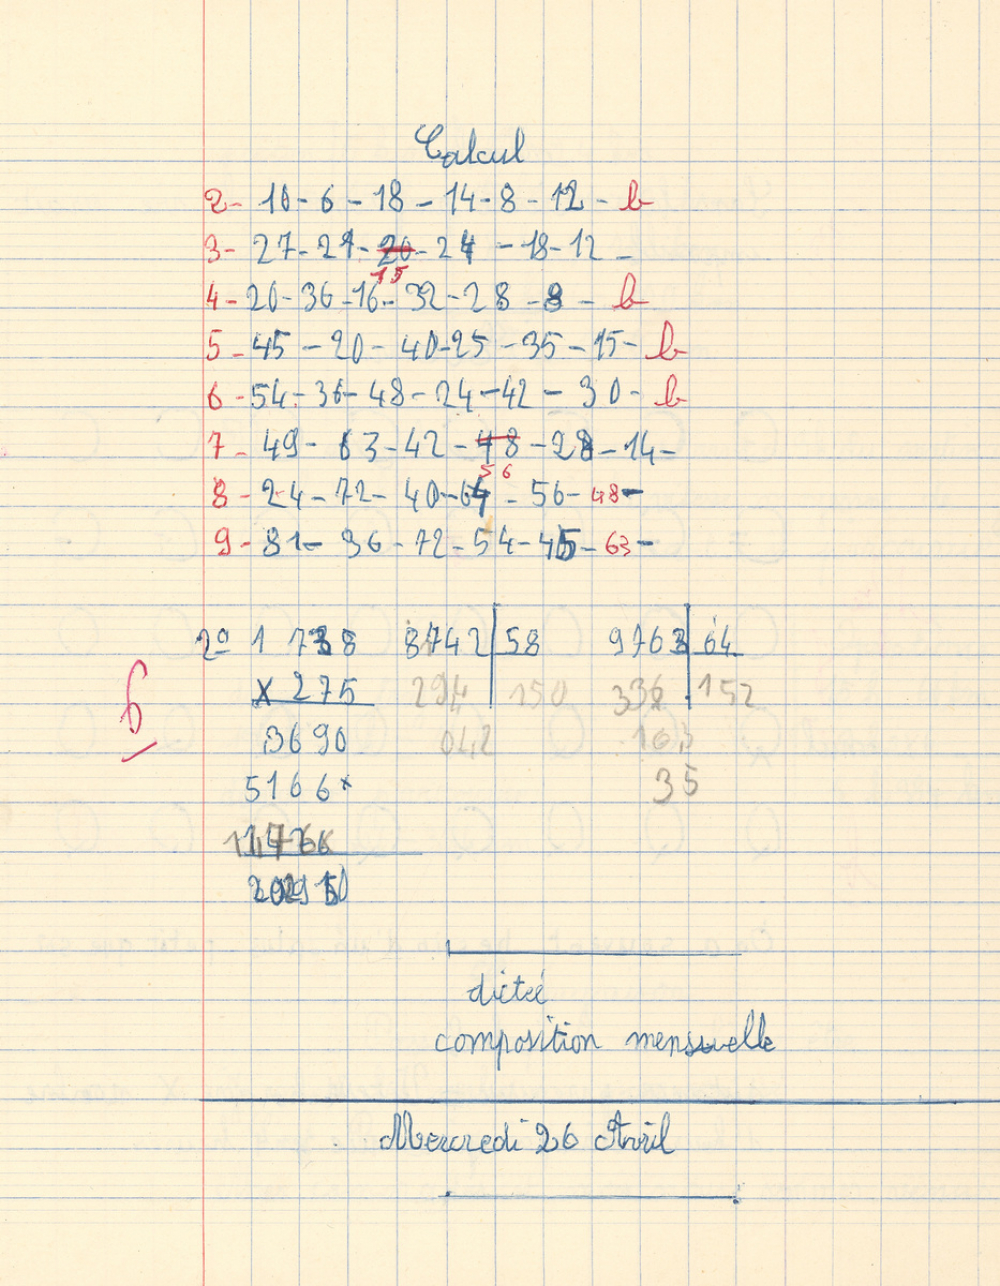 Calcul
2- 10-6-18-14-8-12- b
3- 27-21-20-24-18-12-
15
4-20-36-16-32-28-8- b
5-45-20-40-25-35-15- b
6-54-36-48-24-42-30- b
7-49-63-42-48-28-14-
56
8-24-72-40-64-56-48-
9-81-36-72-54-45-63-
2º 1 738 8742 58 9763 64
x 275 294 150 336 152
b 3690 042 163
5166x 35
1476x
202950
dictée
composition mensuelle
Mercredi 26 Avril